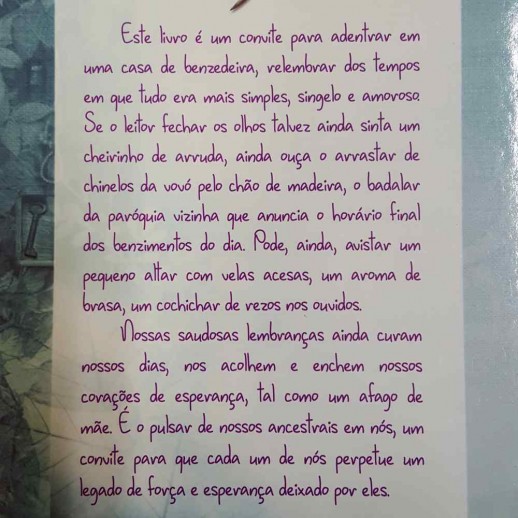 Este livro é um convite para adentrar em
uma casa de benzedeira, relembrar dos tempos
em que tudo era mais simples, singelo e amoroso.
Se o leitor fechar os olhos talvez ainda sinta um
cheirinho de arruda, ainda ouça o arrastar de
chinelos da vovó pelo chão de madeira, o badalar
da paróquia vizinha que anuncia o horário final
dos benzimentos do dia. Pode, ainda, avistar um
pequeno altar com velas acesas, um aroma de
brasa, um cochichar de rezos nos ouvidos.
Nossas saudosas lembranças ainda curam
nossos dias, nos acolhem e enchem nossos
corações de esperança, tal como um afago de
mãe. É o pulsar de nossos ancestrais em nós, um
convite para que cada um de nós perpetue um
legado de força e esperança deixado por eles.